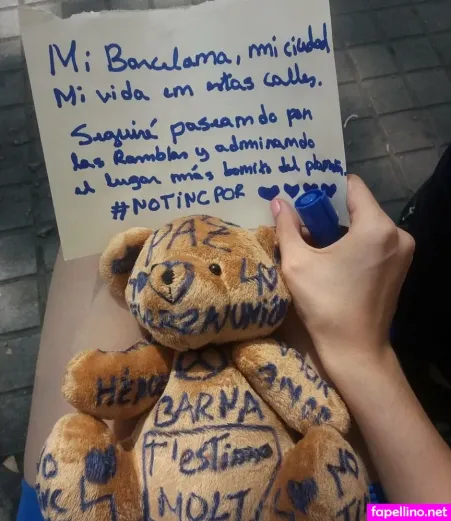 Mi Barcelona, mi ciudad
Mi vida em estas calles.
Seguiré paseamdo por
las Ramblas y admiramdo
el lugar más bomito del planeta.
#NOTINCPOR
PAZ
UNIÓN
HÉROE
BARNA
T'estimo
MOLT
NO
NO
fapellino.net